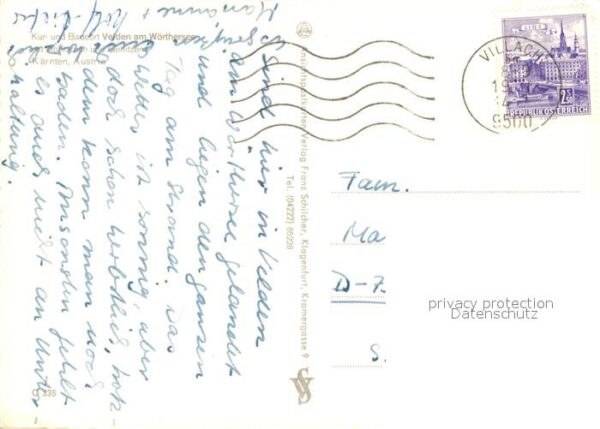 Kur- und Badeort Velden am Wörthersee
Kärnten, Austria
sind hier in Velden
am Wörthersee gelandet
und liegen den ganzen
Tag am Strand. Das
Wetter ist sonnig, aber
doch schon herbstlich, trotz-
dem kann man noch
baden. Ansonsten fehlt
es auch nicht an Unter-
haltung.
Marianne +
C 335
Ansichtspostkarten-Verlag Franz Schilcher, Klagenfurt, Kramergasse 9
Tel. (04222) 85228
VILLACH
9500
2.50
REPUBLIK ÖSTERREICH
Fam.
Ma
D-7
S.
privacy protection
Datenschutz